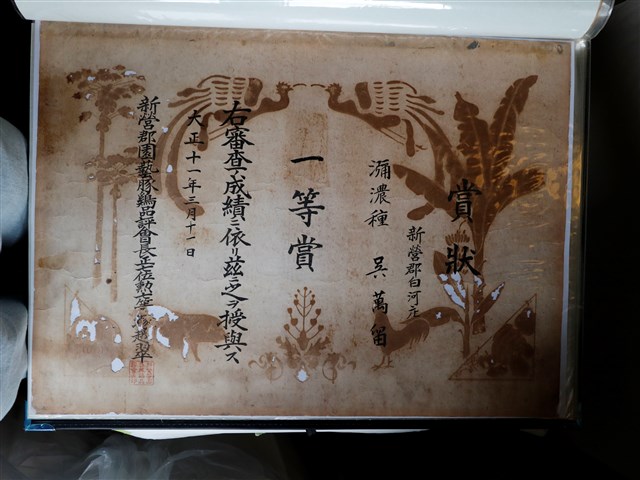 賞狀
新營郡白河庄
瀰濃種 吳萬留
一等賞
右審査ノ成績ニ依リ茲ニ之ヲ授與ス
大正十一年三月十一日
新營郡園藝豚鷄品評會長